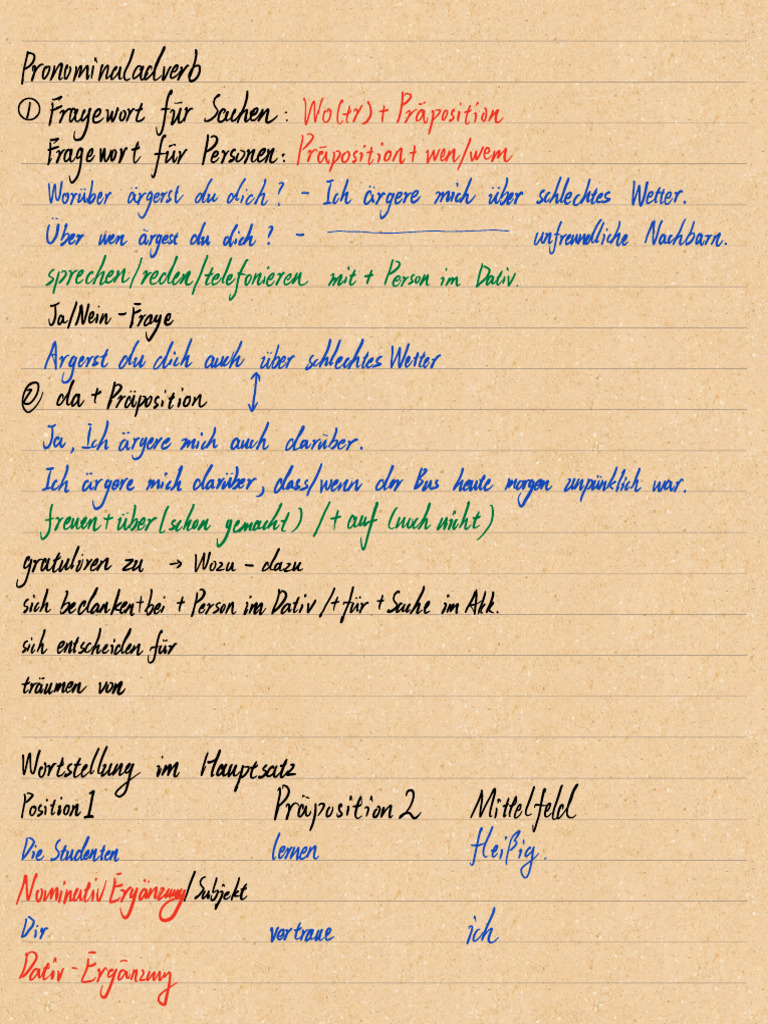 Pronominaladverb
① Fragewort für Sachen: Wo(+r) + Präposition
Fragewort für Personen: Präposition + wen/wem
Worüber ärgerst du dich? - Ich ärgere mich über schlechtes Wetter.
Über wen ärgest du dich? - unfreundliche Nachbarn.
sprechen/reden/telefonieren mit + Person im Dativ.
Ja/Nein-Frage
Ärgerst du dich auch über schlechtes Wetter
② da + Präposition
Ja, Ich ärgere mich auch darüber.
Ich ärgere mich darüber, dass/wenn der Bus heute morgen unpünklich war.
freuen + über (schon gemacht) / + auf (noch nicht)
gratulieren zu → Wozu - dazu
sich bedanken + bei + Person im Dativ / + für + Sache im Akk.
sich entscheiden für
träumen von
Wortstellung im Hauptsatz
Position 1 Präposition 2 Mittelfeld
Die Studenten lernen fleißig.
Nominativ Ergänzung / Subjekt
Dir vertraue ich
Dativ-Ergänzung